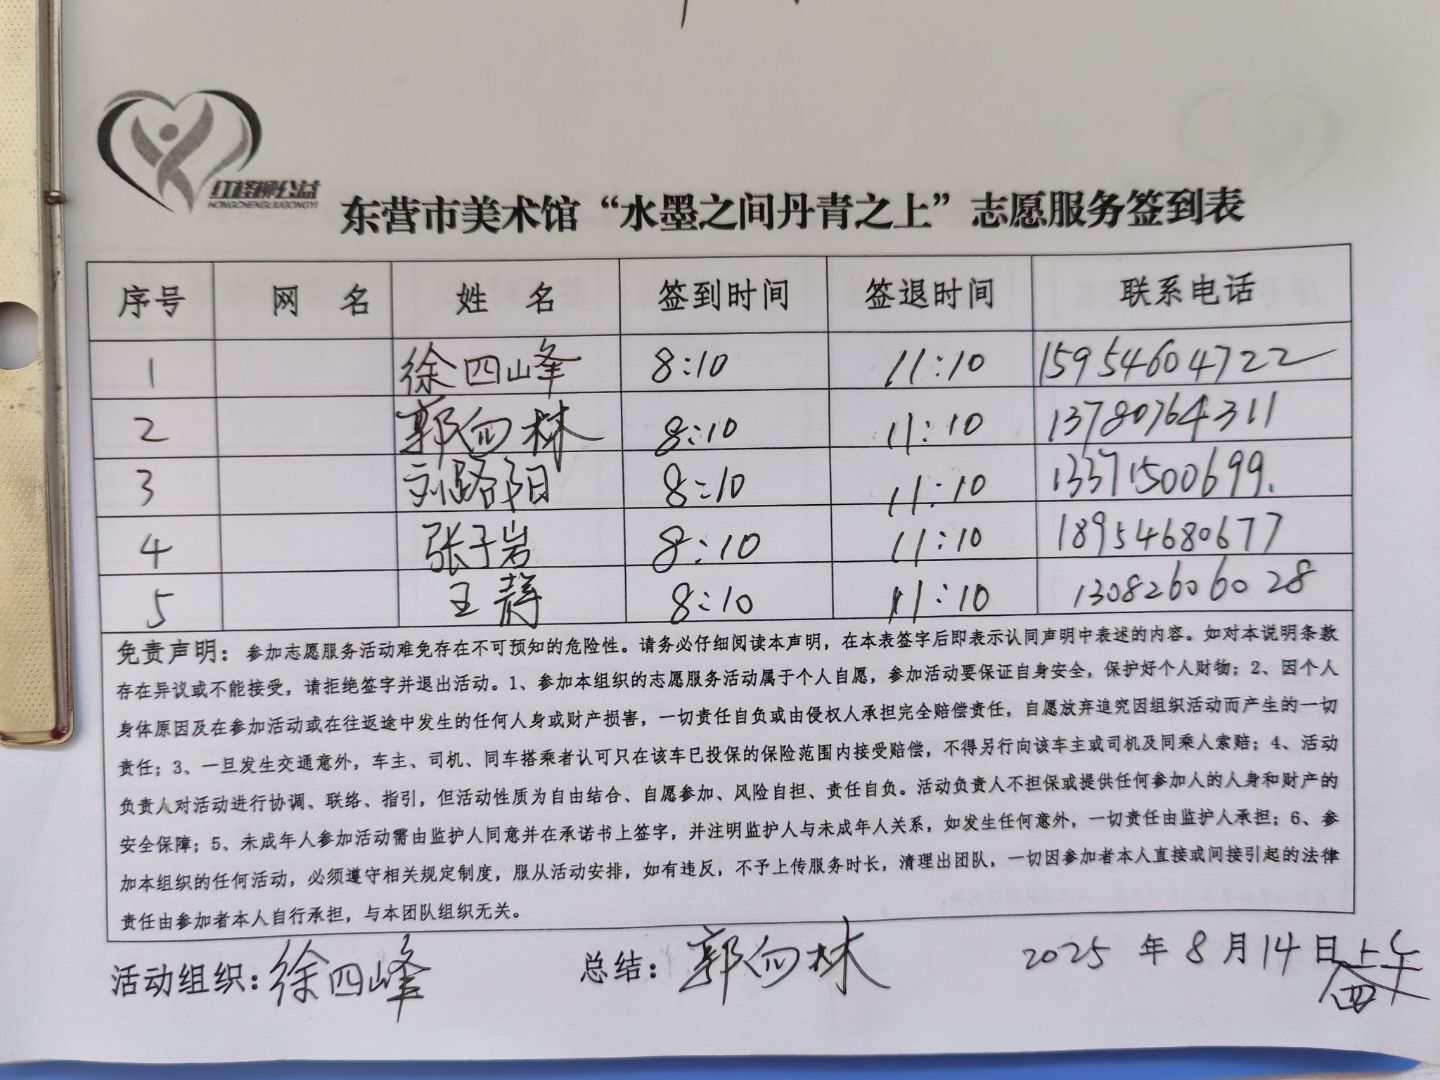 红柽柳公益
HONGCHENGLIUGONGYI
东营市美术馆“水墨之间丹青之上”志愿服务签到表
序号 网 名 姓 名 签到时间 签退时间 联系电话
1 徐四峰 8:10 11:10 15954604722
2 郭向林 8:10 11:10 13780764311
3 刘路阳 8:10 11:10 13371500699.
4 张子岩 8:10 11:10 18954680677
5 王静 8:10 11:10 13082606028
免责声明：参加志愿服务活动难免存在不可预知的危险性。请务必仔细阅读本声明，在本表签字后即表示认同声明中表述的内容。如对本说明条款
存在异议或不能接受，请拒绝签字并退出活动。1、参加本组织的志愿服务活动属于个人自愿，参加活动要保证自身安全，保护好个人财物；2、因个人
身体原因及在参加活动或在往返途中发生的任何人身或财产损害，一切责任自负或由侵权人承担完全赔偿责任，自愿放弃追究因组织活动而产生的一切
责任；3、一旦发生交通意外，车主、司机、同车搭乘者认可只在该车已投保的保险范围内接受赔偿，不得另行向该车主或司机及同乘人索赔；4、活动
负责人对活动进行协调、联络、指引，但活动性质为自由结合、自愿参加、风险自担、责任自负。活动负责人不担保或提供任何参加人的人身和财产的
安全保障；5、未成年人参加活动需由监护人同意并在承诺书上签字，并注明监护人与未成年人关系，如发生任何意外，一切责任由监护人承担；6、参
加本组织的任何活动，必须遵守相关规定制度，服从活动安排，如有违反，不予上传服务时长，清理出团队，一切因参加者本人直接或间接引起的法律
责任由参加者本人自行承担，与本团队组织无关。
活动组织：徐四峰 总结：郭向林 2025 年 8 月 14 日上午